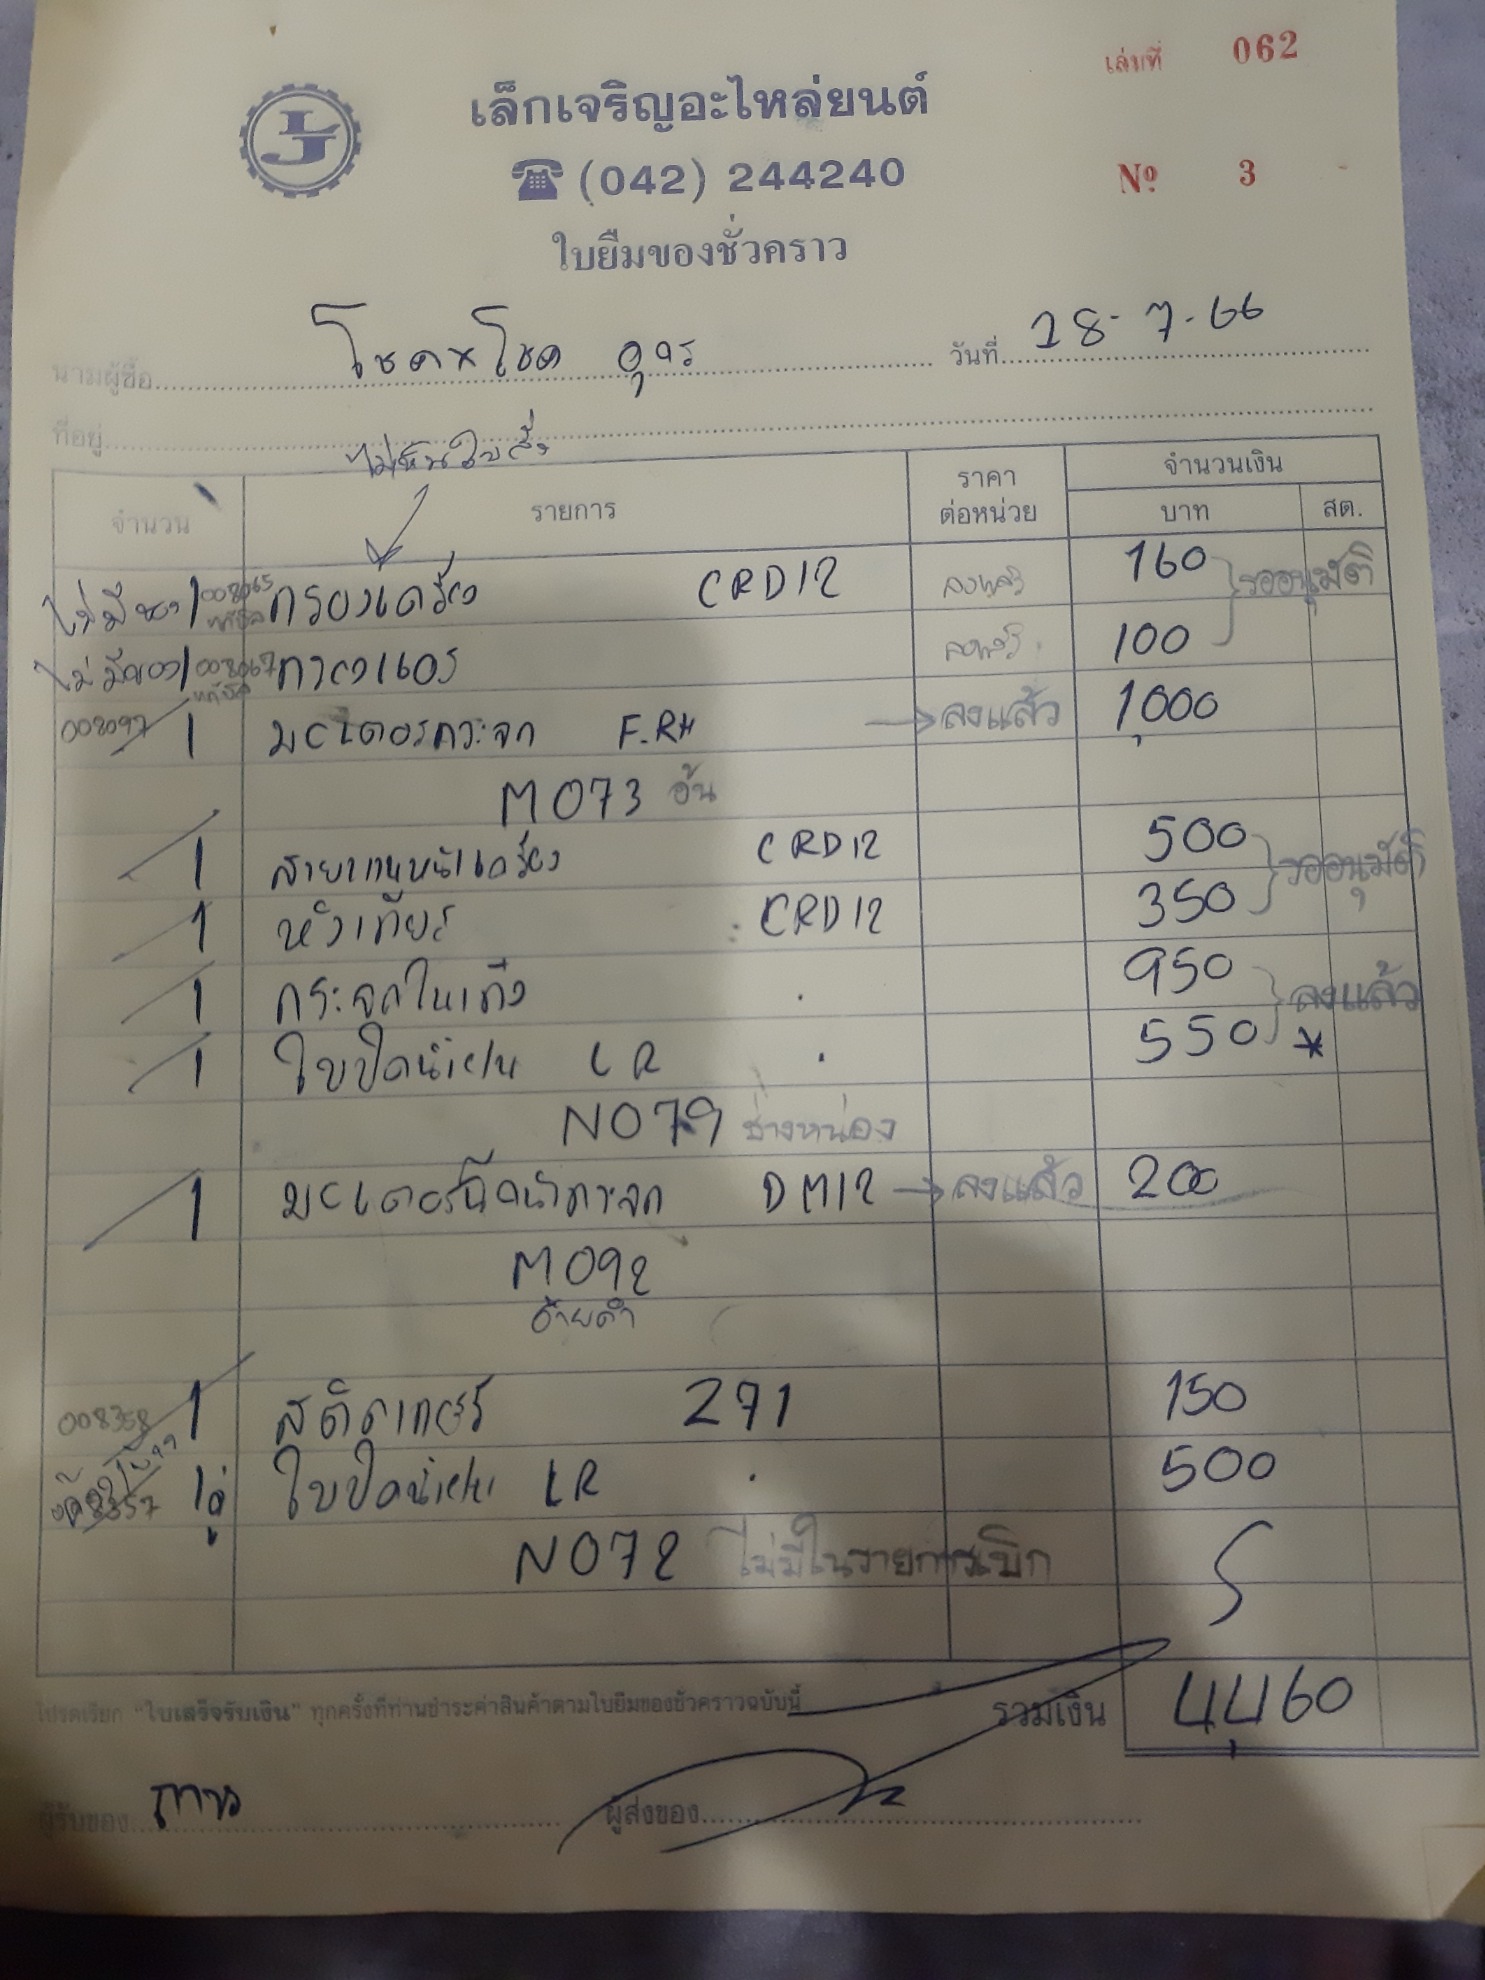 เล่มที่ 062
เล็กเจริญอะไหล่ยนต์
(042) 244240
Nº 3
ใบยืมของชั่วคราว
นามผู้ซื้อ โชคxโชค อุดร วันที่ 28-7-66
ที่อยู่
ไม่เห็นใบสั่ง
จำนวน รายการ ราคาต่อหน่วย จำนวนเงิน
บาท สต.
ไม่มีของ 1 กรองเครื่อง CRD12 ลงแล้ว 160 รออนุมัติ
ไม่มีของ 1 กาวแดง ลงแล้ว 100
008097 1 มอเตอร์กระจก F.RH ลงแล้ว 1,000
M073 อ้น
1 สายพานหน้าเครื่อง CRD12 500 รออนุมัติ
1 หัวเทียน CRD12 350
1 กระจกในเก๋ง 950 ลงแล้ว
1 ใบปัดน้ำฝน LR 550 *
N079 ช่างหน่อง
1 มอเตอร์ฉีดน้ำกระจก DM12 ลงแล้ว 200
M092
อ้ายดำ
008358 1 สติกเกอร์ 271 150
1คู่ ใบปัดน้ำฝน LR 500
N072 ไม่มีในรายการเบิก
โปรดเรียก "ใบเสร็จรับเงิน" ทุกครั้งที่ท่านชำระค่าสินค้าตามใบยืมของชั่วคราวฉบับนี้ รวมเงิน 4,460
ผู้รับของ ผู้ส่งของ